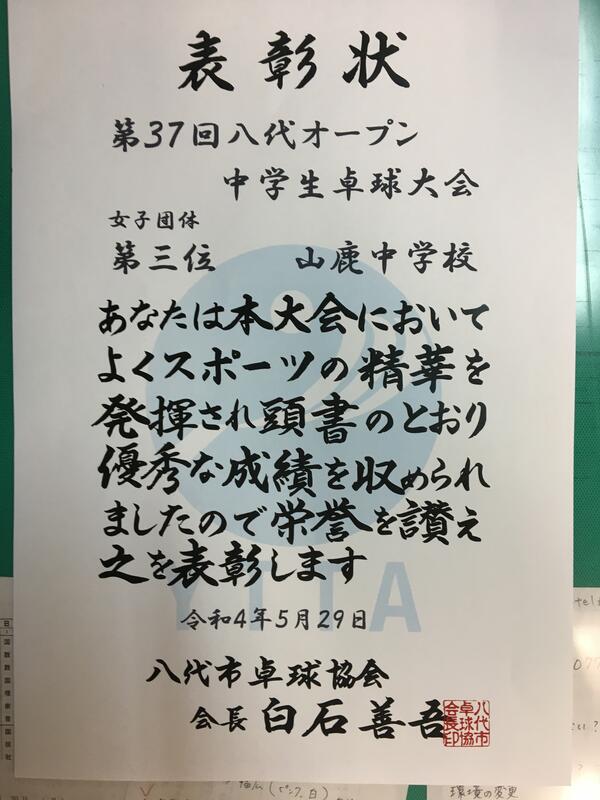 表彰状
第37回八代オープン
中学生卓球大会
女子団体
第三位 山鹿中学校
あなたは本大会において
よくスポーツの精華を
発揮され頭書のとおり
優秀な成績を収められ
ましたので栄誉を讃え
之を表彰します
YTTA
令和4年5月29日
八代市卓球協会
会長 白石善吾
八代市
卓球協
会長印
tel
077
環境の変更